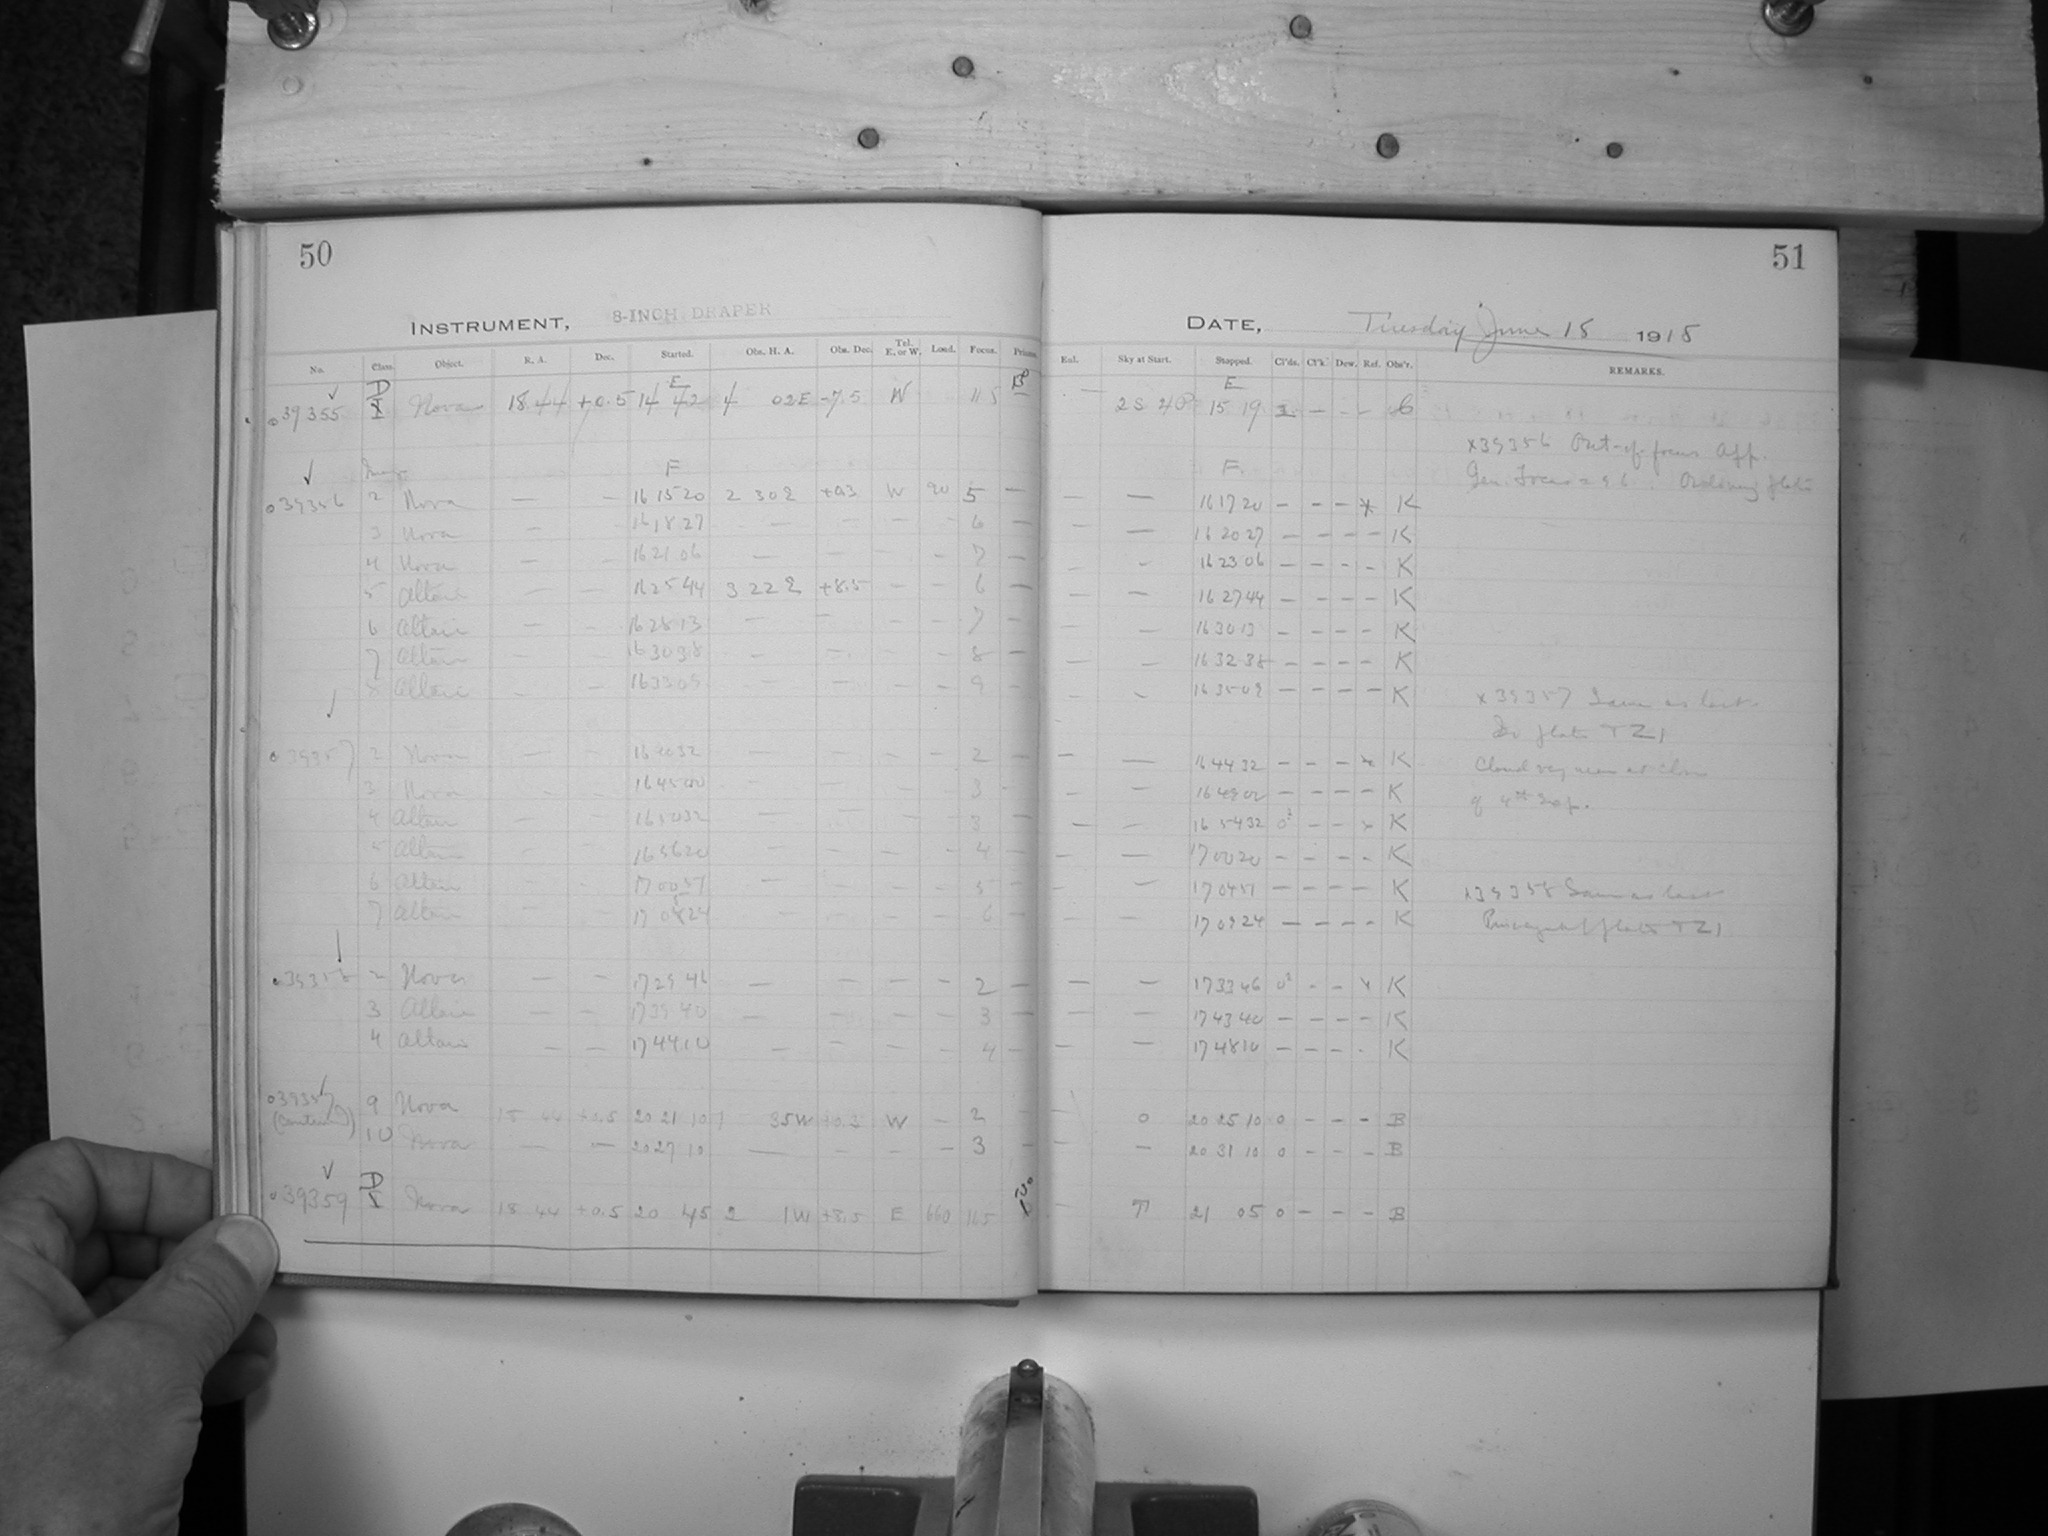 50
INSTRUMENT, 8-INCH DRAPER
No. Class. Object. R. A. Dec. Started. Obs. H. A. Obs. Dec. Tel. E. or W. Load. Focus. Prism.
39355 Nova 18 44 +0.5 14 42 4 02E -7.5 W 115
39356 2 Nova — — 16 15 20 2 30 E +0.3 W 90 5 —
3 Nova — 16 18 27 — — — — — 6 —
4 Nova — — 16 21 06 — — — — 7 —
5 Altair — — 16 25 44 3 22 E +8.5 — — 6 —
6 Altair — — 16 28 13 — — — — 7 —
7 Altair — — 16 30 38 — — — — 8 —
8 Altair — — 16 33 09 — — — — 9 —
39357 2 Nova — — 16 40 32 — — — — 2 —
3 Nova — — 16 45 00 — — — — 3 —
4 Altair — — 16 50 32 — — — — 3 —
5 Altair — — 16 56 20 — — — — 4 —
6 Altair — — 17 00 51 — — — — 5 —
7 Altair — — 17 05 24 — — — — 6 —
39358 2 Nova — — 17 29 46 — — — — 2 —
3 Altair — — 17 39 40 — — — — 3 —
4 Altair — — 17 44 10 — — — — 4 —
39357 9 Nova 18 44 +0.5 20 21 10 1 35W +0.3 W — 2 —
(Continued) 10 Nova — — 20 27 10 — — — — 3 —
39359 Nova 18 44 +0.5 20 45 2 1W +8.5 E 660 115
51
DATE, Tuesday June 18 1918
Eul. Sky at Start. Stopped. Cl'ds. Cl'k. Dew. Ref. Obs'r. REMARKS.
E
— 15 19 — — —
x39356 Out-of-focus App.
Gen. Focus = 96. Ordinary plate
F
— — 16 17 20 — — — x K
— — 16 20 27 — — — — K
— — 16 23 06 — — — — K
— — 16 27 44 — — — — K
— — 16 30 13 — — — — K
— — 16 32 38 — — — — K
— — 16 35 09 — — — — K
x39357 Same as last.
plate TZ1
— — 16 44 32 — — — x K
Cloud very near at close
— — 16 49 00 — — — — K
of 4th exp.
— — 16 54 32 — — x K
— — 17 00 20 — — — — K
— — 17 04 51 — — — — K
x39358 Same as last
— — 17 09 24 — — — — K
plate TZ1
— — 17 33 46 — — x K
— — 17 43 40 — — — — K
— — 17 48 10 — — — — K
— 0 20 25 10 0 — — — B
— — 20 31 10 0 — — — B
— 21 05 0 — — — B